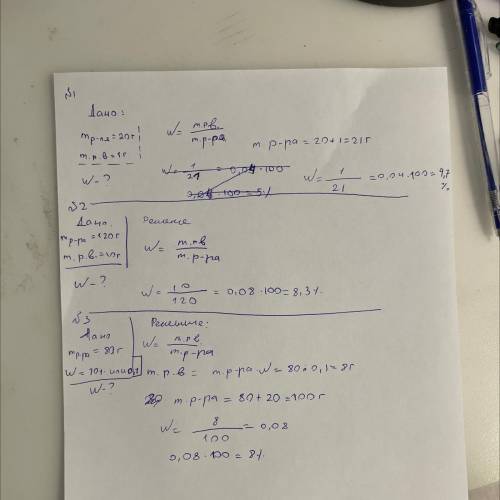 №1
Дано:
m р-ля = 20г
m.р.в = 1г
W - ?
W = m.р.в. / m.р-ра
m р-ра = 20+1 = 21г
W = 1/21 = 0,04 · 100
0,04 · 100 = 5%
W = 1/21 = 0,04 · 100 = 4,7 %
№2
Дано:
m р-ра = 120г
m.р.в. = 10г
W - ?
Решение
W = m.рв / m.р-ра
W = 10/120 = 0,08 · 100 = 8,3%
№3
Дано
m р-ра = 80г
W = 10% или 0,1
W - ?
Решение:
W = m.рв / m.р-ра
m.р-в = m.р-ра · W = 80 · 0,1 = 8г
m.р-ра = 80 + 20 = 100г
W = 8/100 = 0,08
0,08 · 100 = 8%